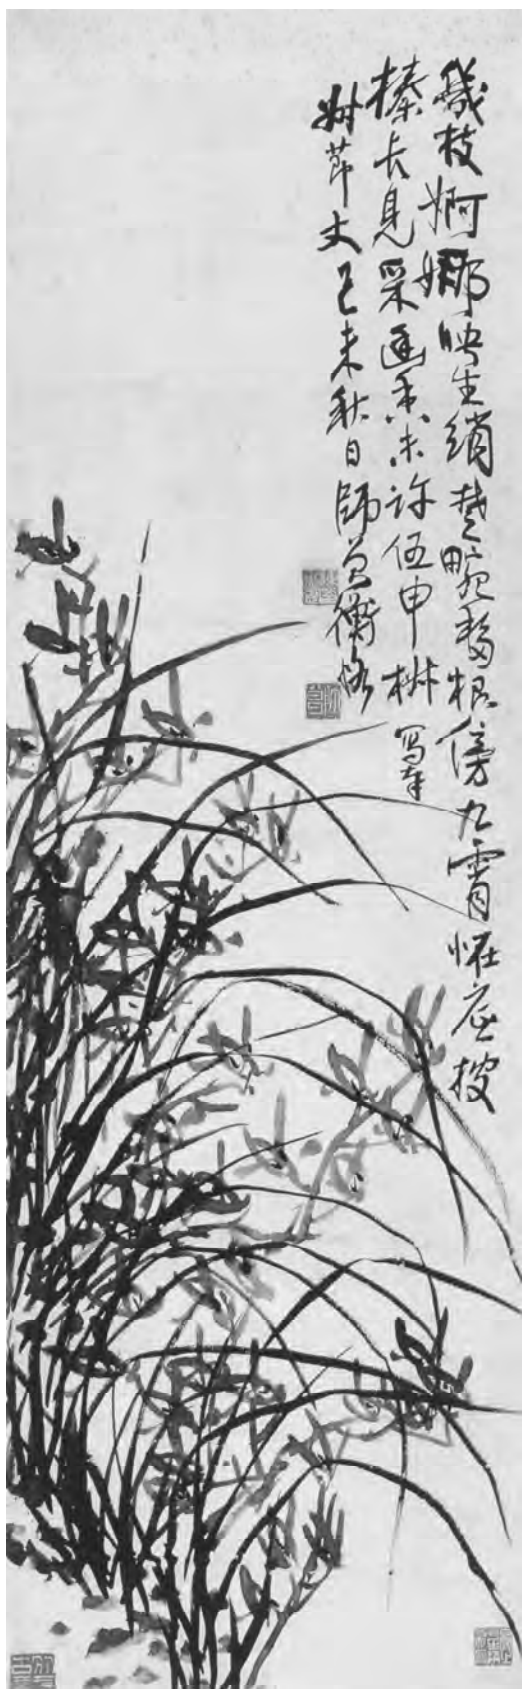 幾枝婀娜映生綃楚畹移根傍九霄怪底披
榛长見采画香未许伍申椒 写奉
尌莭丈己未秋日師曾衡恪